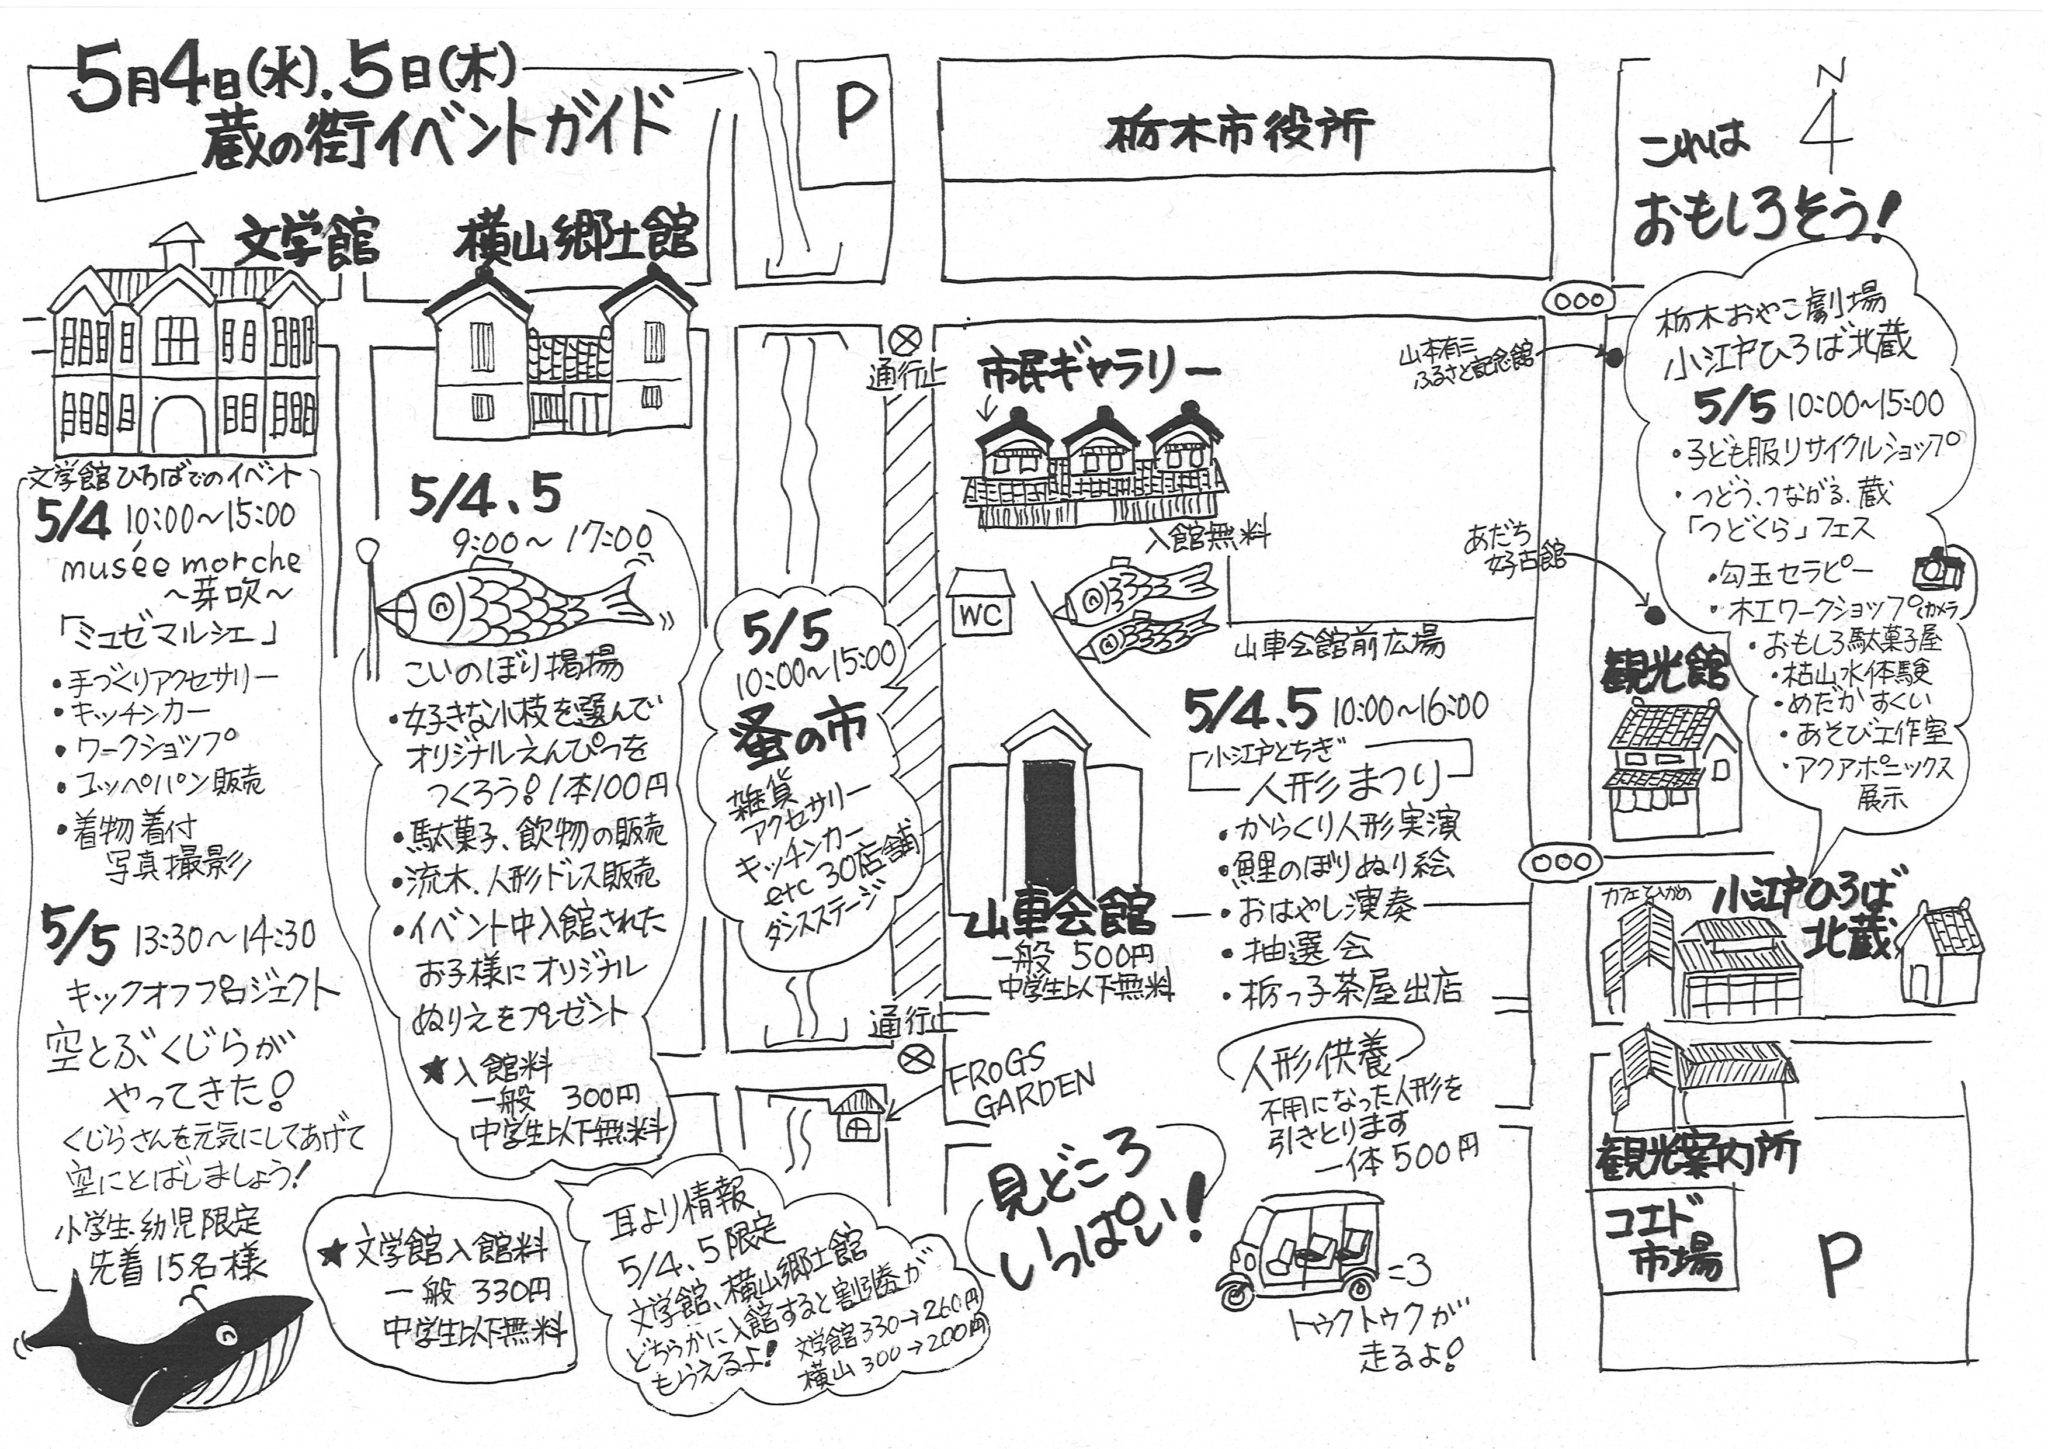 5月4日(水).5日(木)
蔵の街イベントガイド
P
栃木市役所
N
これは
おもしろそう!
文学館
横山郷土館
文学館ひろばでのイベント
5/4 10:00〜15:00
musée morche
〜芽吹〜
「ミュゼマルシェ」
・手づくりアクセサリー
・キッチンカー
・ワークショップ
・コッペパン販売
・着物着付
写真撮影
5/5 13:30〜14:30
キックオフプロジェクト
空とぶくじらが
やってきた!
くじらさんを元気にしてあげて
空にとばしましょう!
小学生、幼児限定
先着15名様
★文学館入館料
一般 330円
中学生以下無料
5/4、5
9:00〜17:00
こいのぼり掲揚
・好きな小枝を選んで
オリジナルえんぴつを
つくろう!1本100円
・駄菓子、飲物の販売
・流木、人形ドレス販売
・イベント中入館された
お子様にオリジナル
ぬりえをプレゼント
★入館料
一般 300円
中学生以下無料
耳より情報
5/4、5限定
文学館、横山郷土館
どちらかに入館すると割引券が
もらえるよ!
文学館330→260円
横山 300→200円
5/5
10:00〜15:00
蚤の市
雑貨
アクセサリー
キッチンカー
etc 30店舗
ダンスステージ
通行止
通行止
FROGS
GARDEN
市民ギャラリー
入館無料
WC
山車会館前広場
山車会館
一般 500円
中学生以下無料
5/4、5 10:00〜16:00
小江戸とちぎ
人形まつり
・からくり人形実演
・鯉のぼりぬり絵
・おはやし演奏
・抽選会
・栃っ子茶屋出店
人形供養
不用になった人形を
引きとります
一体500円
見どころ
いっぱい!
=3
トゥクトゥクが
走るよ!
山本有三
ふるさと記念館
あだち
好古館
観光館
栃木おやこ劇場
小江戸ひろば北蔵
5/5 10:00〜15:00
・子ども服リサイクルショップ
・つどう、つながる、蔵
「つどくら」フェス
・勾玉セラピー
・木工ワークショップ(カメラ)
・おもしろ駄菓子屋
・枯山水体験
・めだかすくい
・あそび工作室
・アクアポニックス
展示
カフェひがの
小江戸ひろば
北蔵
観光案内所
コエド
市場
P